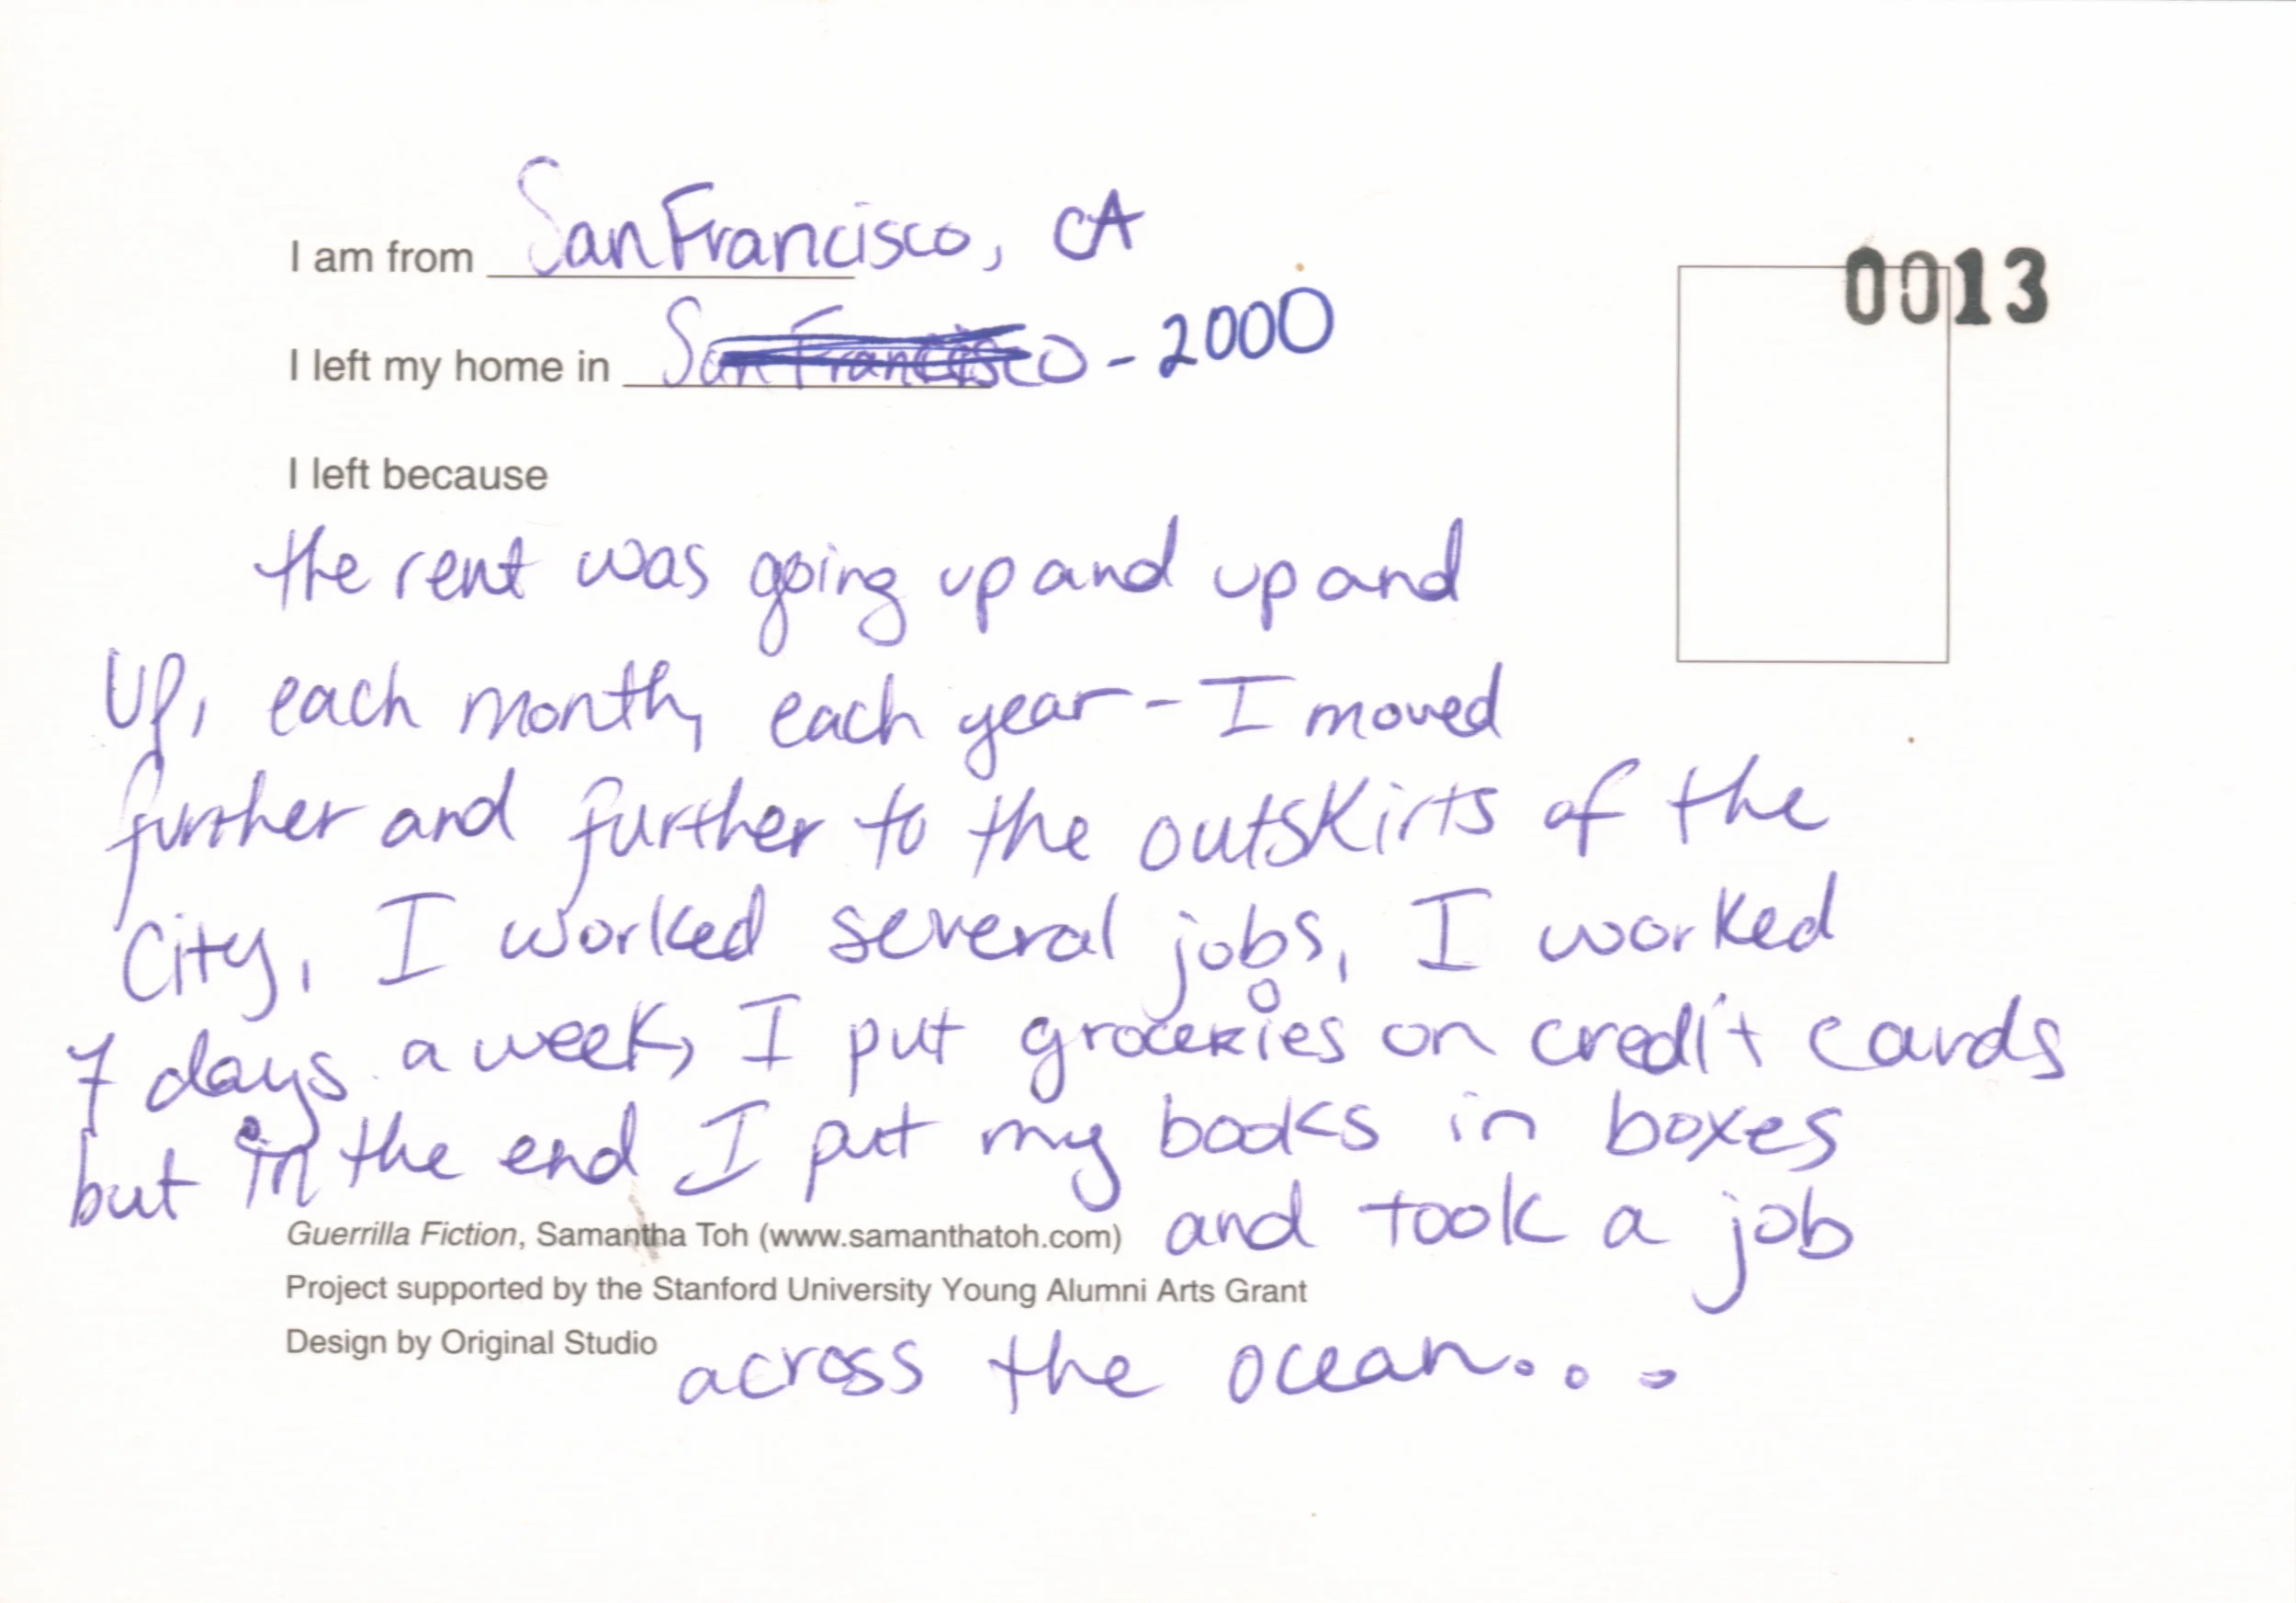 I am from San Francisco, CA
0013
I left my home in San Francisco - 2000
I left because
the rent was going up and up and
up, each month, each year - I moved
further and further to the outskirts of the
City, I worked several jobs, I worked
7 days a week, I put groceries on credit cards
but in the end I put my books in boxes
Guerrilla Fiction, Samantha Toh (www.samanthatoh.com) and took a job
Project supported by the Stanford University Young Alumni Arts Grant
Design by Original Studio
across the ocean...